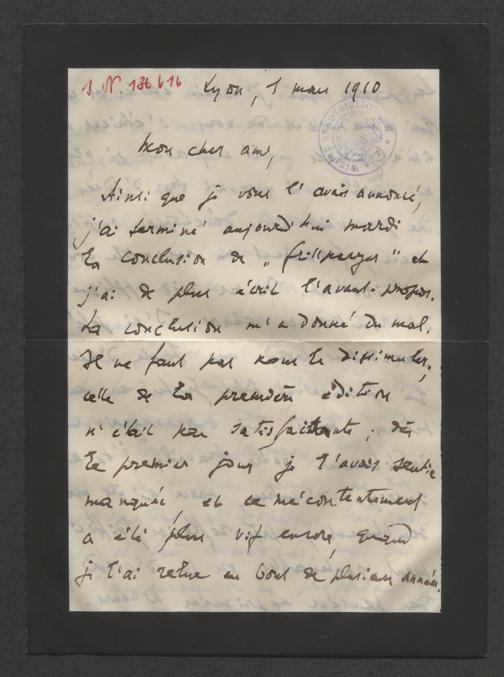 J. N. 136.616
Lyon, 1 mars 1910
Mon cher ami,
Ainsi que je vous l'avais annoncé,
j'ai terminé aujourd'hui mardi
la conclusion de „Grillparzer" et
j'ai de plus écrit l'avant-propos.
La conclusion m'a donné du mal.
Il ne faut pas nous le dissimuler,
celle de la première édition
n'était pas satisfaisante ; dès
le premier jour je l'avais sentie
manquée, et ce mécontentement
a été plus vif encore, quand
je l'ai relue au bout de plusieurs années.